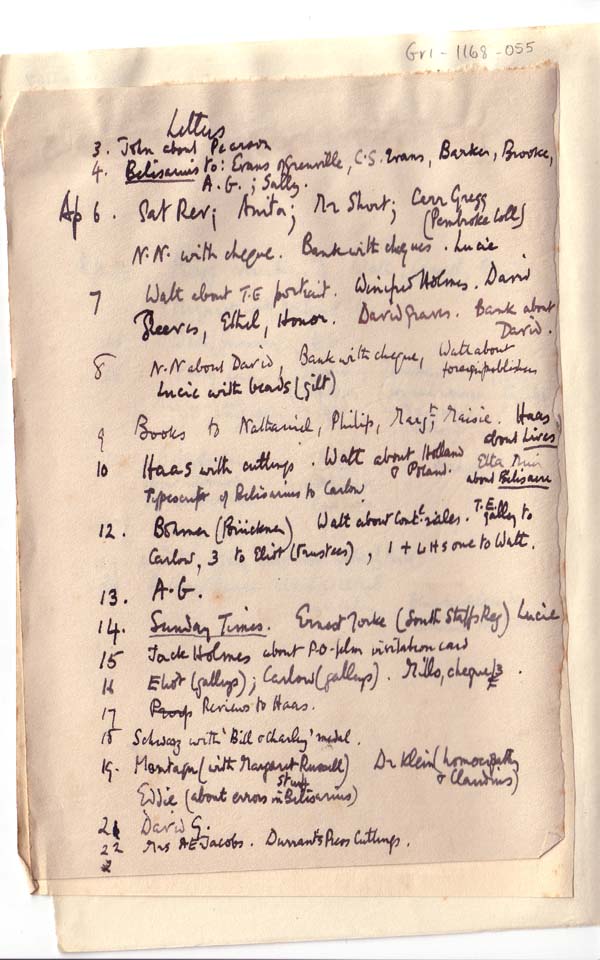 Gr1-1168-055
Letters
3. John about Pearson
4. Belisarius to: Evans of Grenville, C.S. Evans, Barker, Brooke,
A.G.; Sally.
Ap 6. Sat Rev; Anita; Mr Short; Carr Gregg
(Pembroke Coll)
N.N. with cheque. Bank with cheques. Lucie
7 Watt about T.E portrait. Winifred Holmes. David
Reeves, Ethel, Honor. David Graves. Bank about
David.
8 N.N about David, Bank with cheque, Watt about
foreign publishers
Lucie with beads (gilt)
9 Books to Nathaniel, Philip, Margt, Maisie. Haas
about Lives
10 Haas with cuttings. Watt about Holland
& Poland.
about Belisarius
Typescript of Belisarius to Carlow
12. Böhmer Watt about Contl sales. T.E. galley to
Carlow, 3 to Eliot (Trustees), 1 + one to Watt.
13. A.G.
14. Sunday Times. Ernest Yorke (South Staffs Reg) Lucie
15 Jack Holmes about P.O-film invitation card
16 Eliot (galleys); Carlow (galleys). Mills, cheque
17 Reviews to Haas.
18 Schwarz with 'Bill & Charley' medal.
19. Montagu (with Margaret Russell) Dr Klein (homoeopathy
& Claudius)
Eddie (about errors in Belisarius)
21 David G.
22 Mrs AE Jacobs. Durrants Press Cuttings.